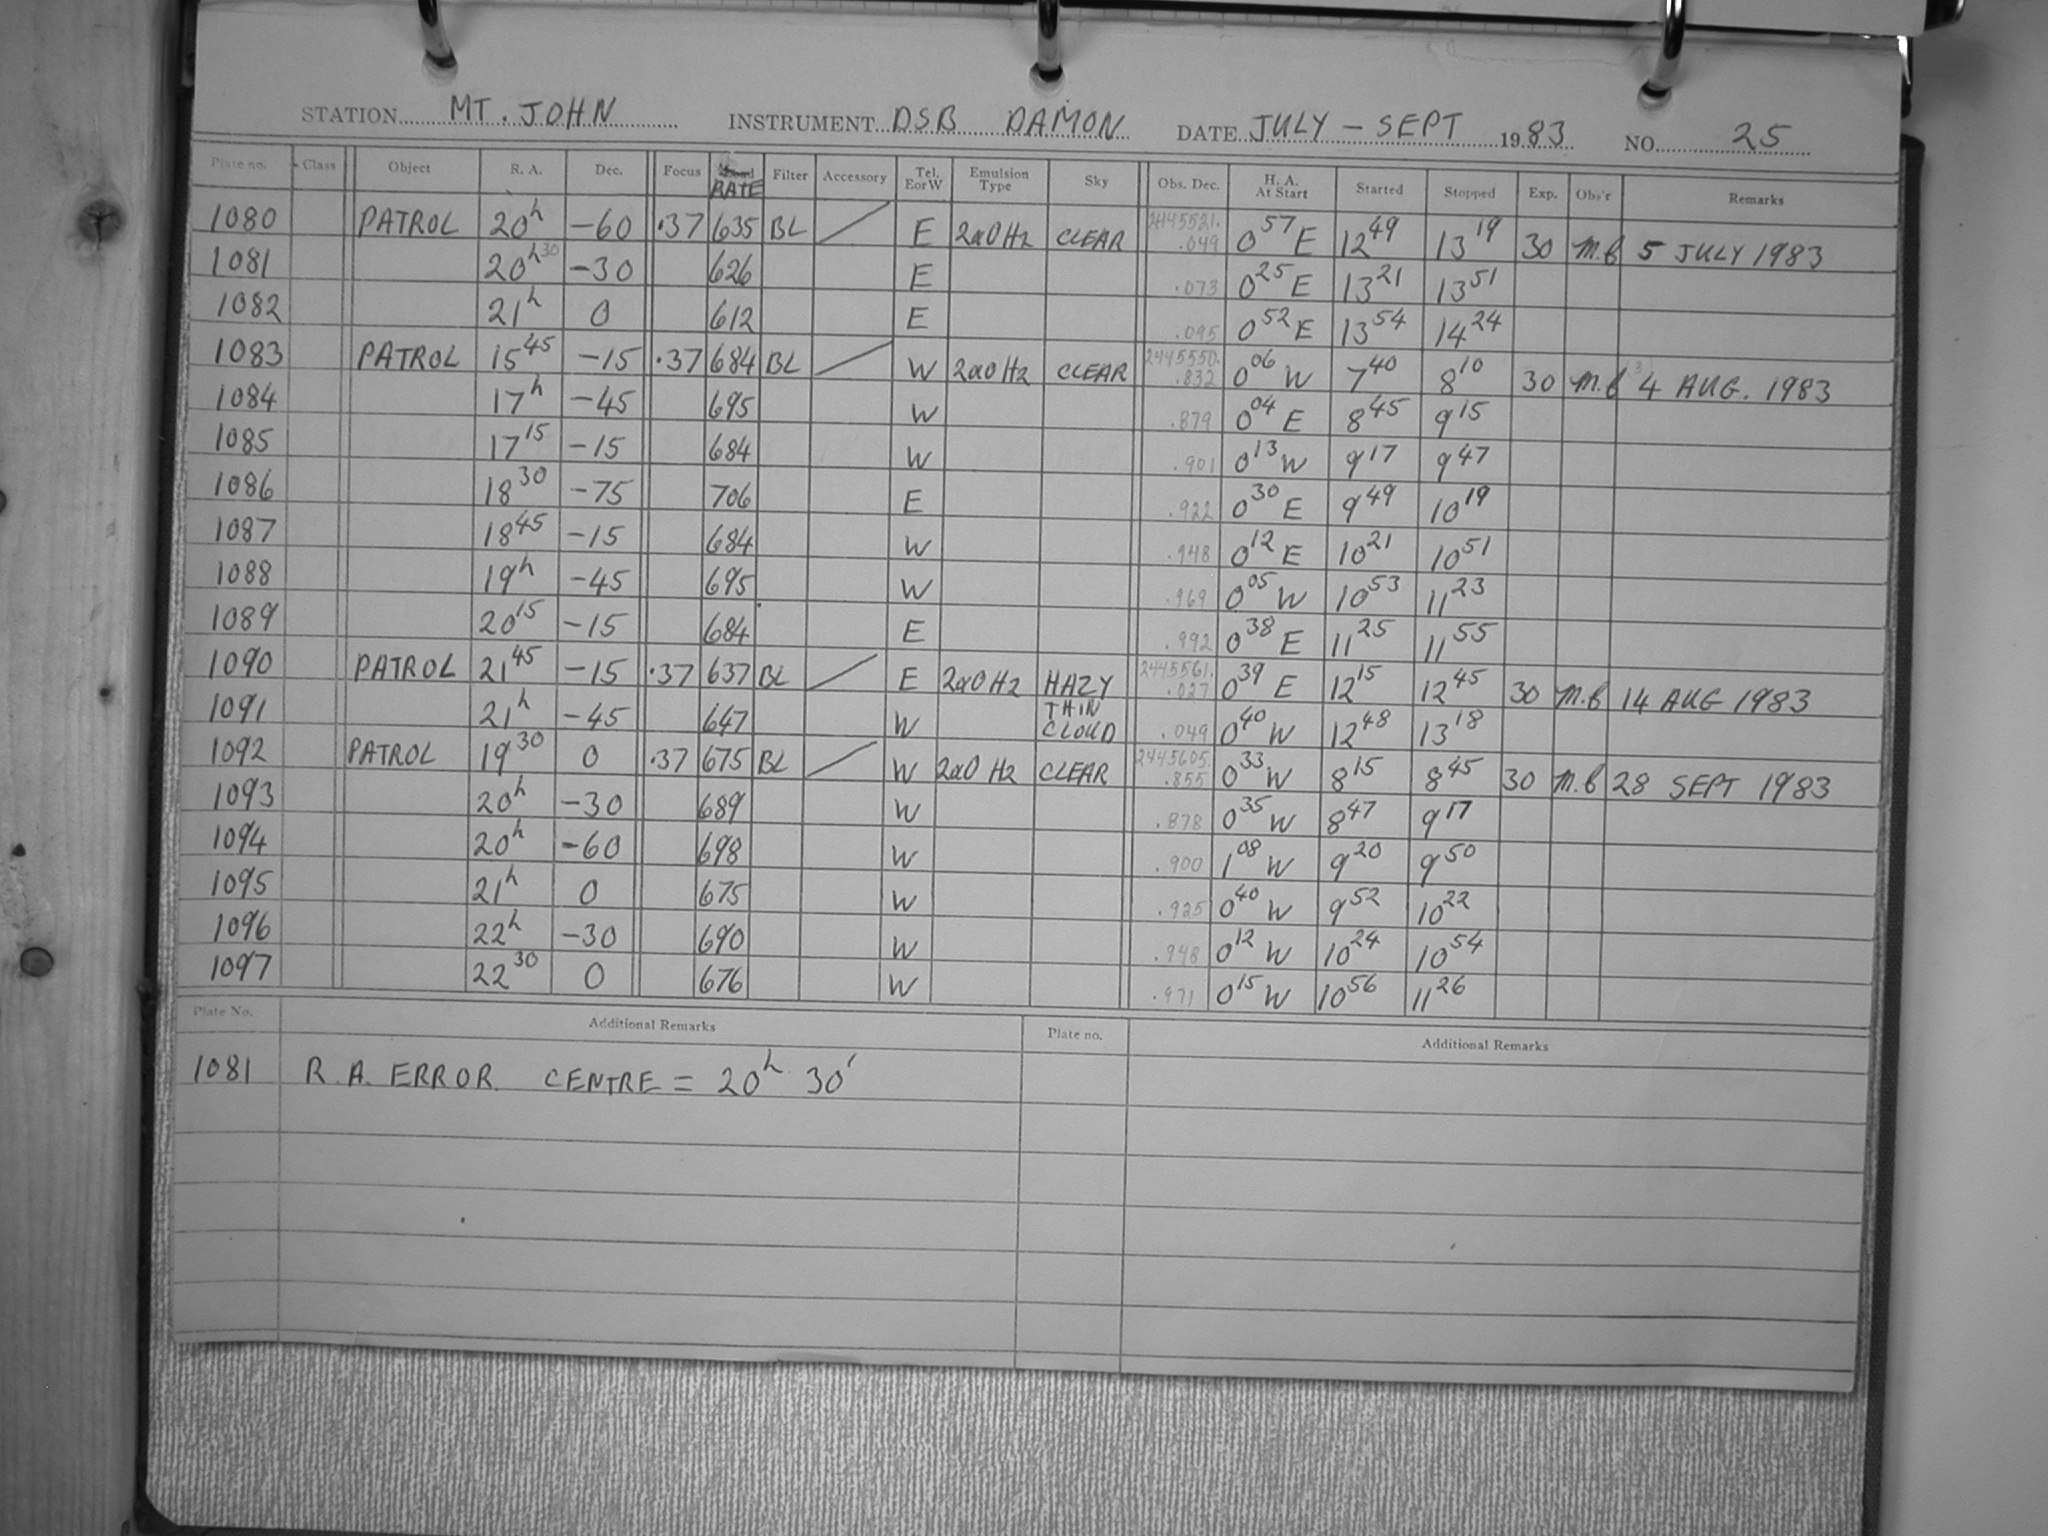 STATION MT. JOHN INSTRUMENT DSB DAMON DATE JULY – SEPT 1983 NO. 25
Plate no. Class Object R. A. Dec. Focus RATE Filter Accessory Tel. E or W Emulsion Type Sky Obs. Dec. H. A. At Start Started Stopped Exp. Obs'r Remarks
1080 PATROL 20h -60 .37 635 BL / E 2a0 Hz CLEAR 2445521. .049 0 57 E 12 49 13 19 30 M.B 5 JULY 1983
1081 20h30 -30 626 E .073 0 25 E 13 21 13 51
1082 21h 0 612 E .095 0 52 E 13 54 14 24
1083 PATROL 15 45 -15 .37 684 BL / W 2a0 Hz CLEAR 2445550. .832 0 06 W 7 40 8 10 30 M.B 4 AUG. 1983
1084 17h -45 695 W .879 0 04 E 8 45 9 15
1085 17 15 -15 684 W .901 0 13 W 9 17 9 47
1086 18 30 -75 706 E .922 0 30 E 9 49 10 19
1087 18 45 -15 684 W .948 0 12 E 10 21 10 51
1088 19h -45 695 W .969 0 05 W 10 53 11 23
1089 20 15 -15 684 E .992 0 38 E 11 25 11 55
1090 PATROL 21 45 -15 .37 637 BL / E 2a0 Hz HAZY 2445561. .027 0 39 E 12 15 12 45 30 M.B 14 AUG 1983
1091 21h -45 647 W THIN CLOUD .049 0 40 W 12 48 13 18
1092 PATROL 19 30 0 .37 675 BL / W 2a0 Hz CLEAR 2445605. .855 0 33 W 8 15 8 45 30 M.B 28 SEPT 1983
1093 20h -30 689 W .878 0 35 W 8 47 9 17
1094 20h -60 698 W .900 1 08 W 9 20 9 50
1095 21h 0 675 W .925 0 40 W 9 52 10 22
1096 22h -30 690 W .948 0 12 W 10 24 10 54
1097 22 30 0 676 W .971 0 15 W 10 56 11 26
Plate No. Additional Remarks Plate no. Additional Remarks
1081 R.A. ERROR. CENTRE = 20h 30'